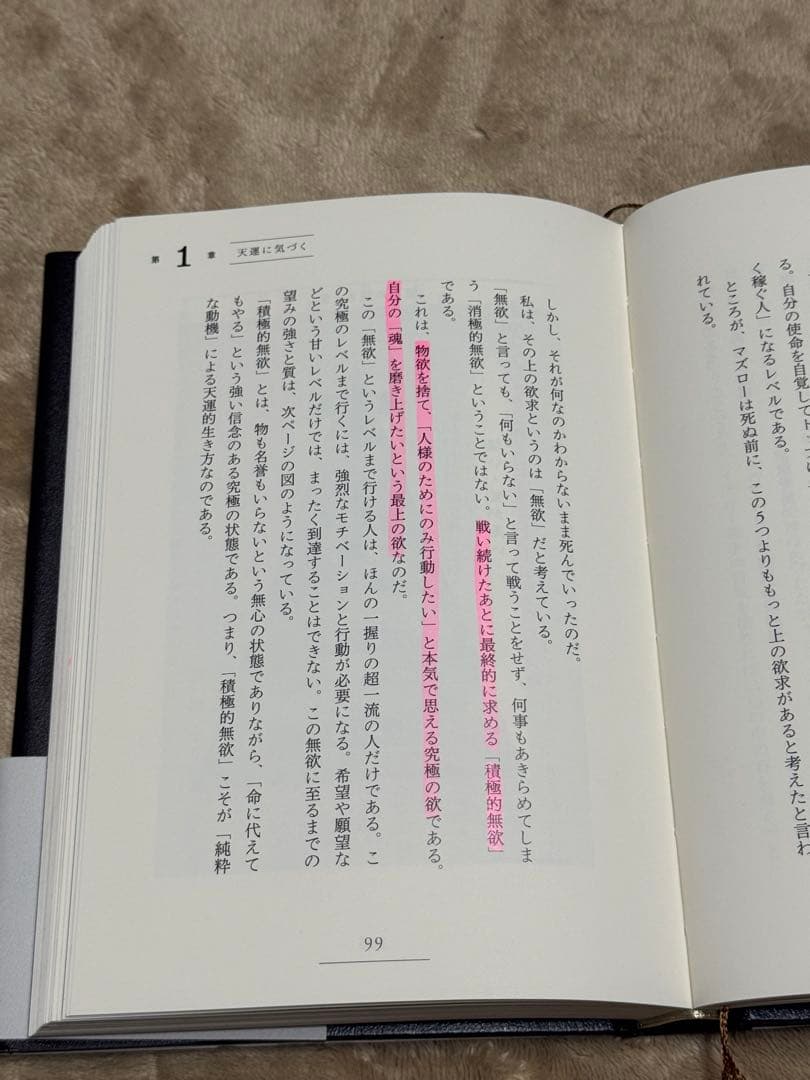 る。自分の使命を自覚して
く稼ぐ人」になるレベルである。
ところが、マズローは死ぬ前に、この5つよりももっと上の欲求があると考えたと言わ
れている。
第1章 天運に気づく
しかし、それが何なのかわからないまま死んでいったのだ。
私は、その上の欲求というのは「無欲」だと考えている。
「無欲」と言っても、「何もいらない」と言って戦うことをせず、何事もあきらめてしま
う「消極的無欲」ということではない。戦い続けたあとに最終的に求める「積極的無欲」
である。
これは、物欲を捨て、「人様のためにのみ行動したい」と本気で思える究極の欲である。
自分の「魂」を磨き上げたいという最上の欲なのだ。
この「無欲」というレベルまで行ける人は、ほんの一握りの超一流の人だけである。こ
の究極のレベルまで行くには、強烈なモチベーションと行動が必要になる。希望や願望な
どという甘いレベルだけでは、まったく到達することはできない。この無欲に至るまでの
望みの強さと質は、次ページの図のようになっている。
「積極的無欲」とは、物も名誉もいらないという無心の状態でありながら、「命に代えて
もやる」という強い信念のある究極の状態である。つまり、「積極的無欲」こそが「純粋
な動機」による天運的生き方なのである。
99